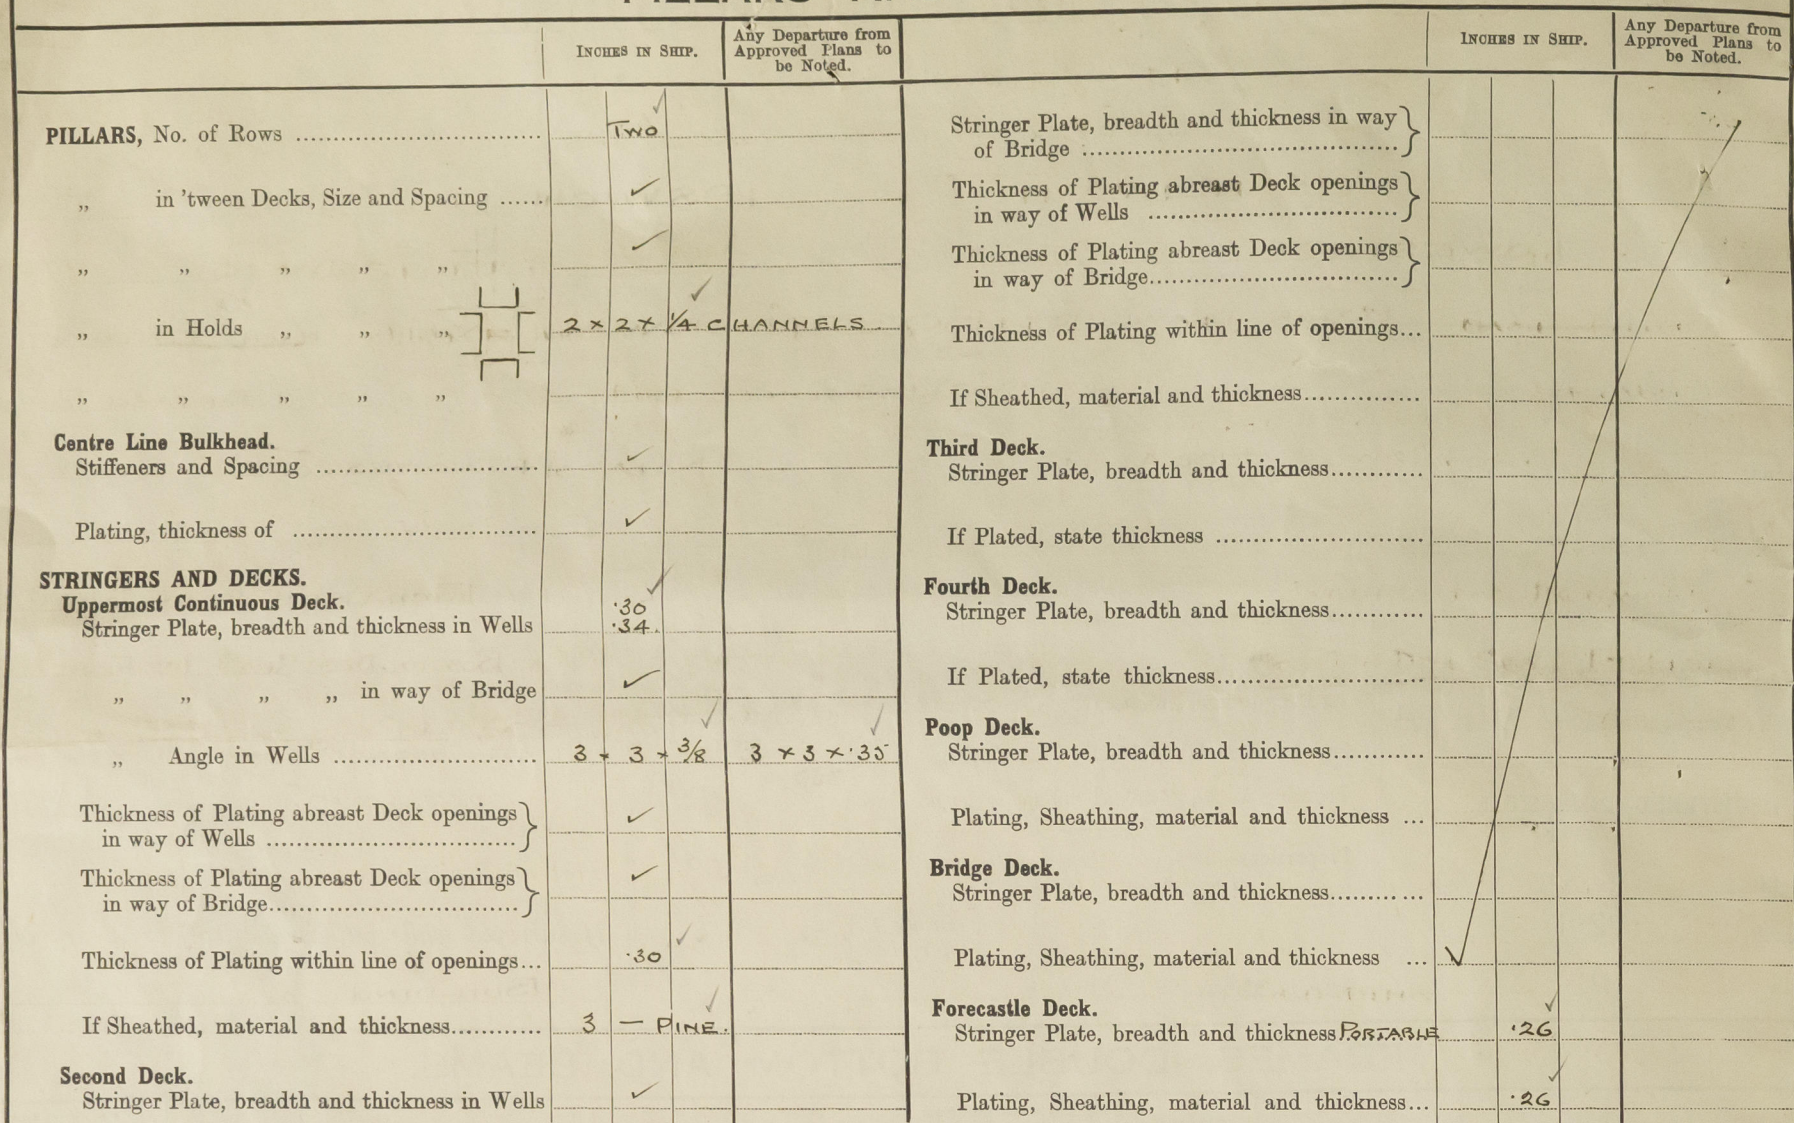 INCHES IN SHIP.
Any Departure from
Approved Plans to
be Noted.
PILLARS, No. of Rows ........ Two ✓
„ in 'tween Decks, Size and Spacing ...... ✓
„ „ „ „ „ ✓
„ in Holds „ „ „ 2 × 2 × 1/4 CHANNELS ✓
„ „ „ „ „
Centre Line Bulkhead.
Stiffeners and Spacing ........ ✓
Plating, thickness of ........ ✓
STRINGERS AND DECKS.
Uppermost Continuous Deck. ·30 ✓
Stringer Plate, breadth and thickness in Wells ·34.
„ „ „ „ in way of Bridge ✓
„ Angle in Wells ........ 3 × 3 × 3/8 ✓ 3 × 3 × ·35 ✓
Thickness of Plating abreast Deck openings
in way of Wells ........ ✓
Thickness of Plating abreast Deck openings
in way of Bridge........ ✓
Thickness of Plating within line of openings... ·30 ✓
If Sheathed, material and thickness........ 3 — PINE. ✓
Second Deck.
Stringer Plate, breadth and thickness in Wells ✓
INCHES IN SHIP.
Any Departure from
Approved Plans to
be Noted.
Stringer Plate, breadth and thickness in way
of Bridge ........
Thickness of Plating abreast Deck openings
in way of Wells ........
Thickness of Plating abreast Deck openings
in way of Bridge........
Thickness of Plating within line of openings...
If Sheathed, material and thickness........
Third Deck.
Stringer Plate, breadth and thickness........
If Plated, state thickness ........
Fourth Deck.
Stringer Plate, breadth and thickness........
If Plated, state thickness........
Poop Deck.
Stringer Plate, breadth and thickness........
Plating, Sheathing, material and thickness ...
Bridge Deck.
Stringer Plate, breadth and thickness........
Plating, Sheathing, material and thickness ... ✓
Forecastle Deck.
Stringer Plate, breadth and thickness PORTABLE ·26 ✓
Plating, Sheathing, material and thickness... ·26 ✓